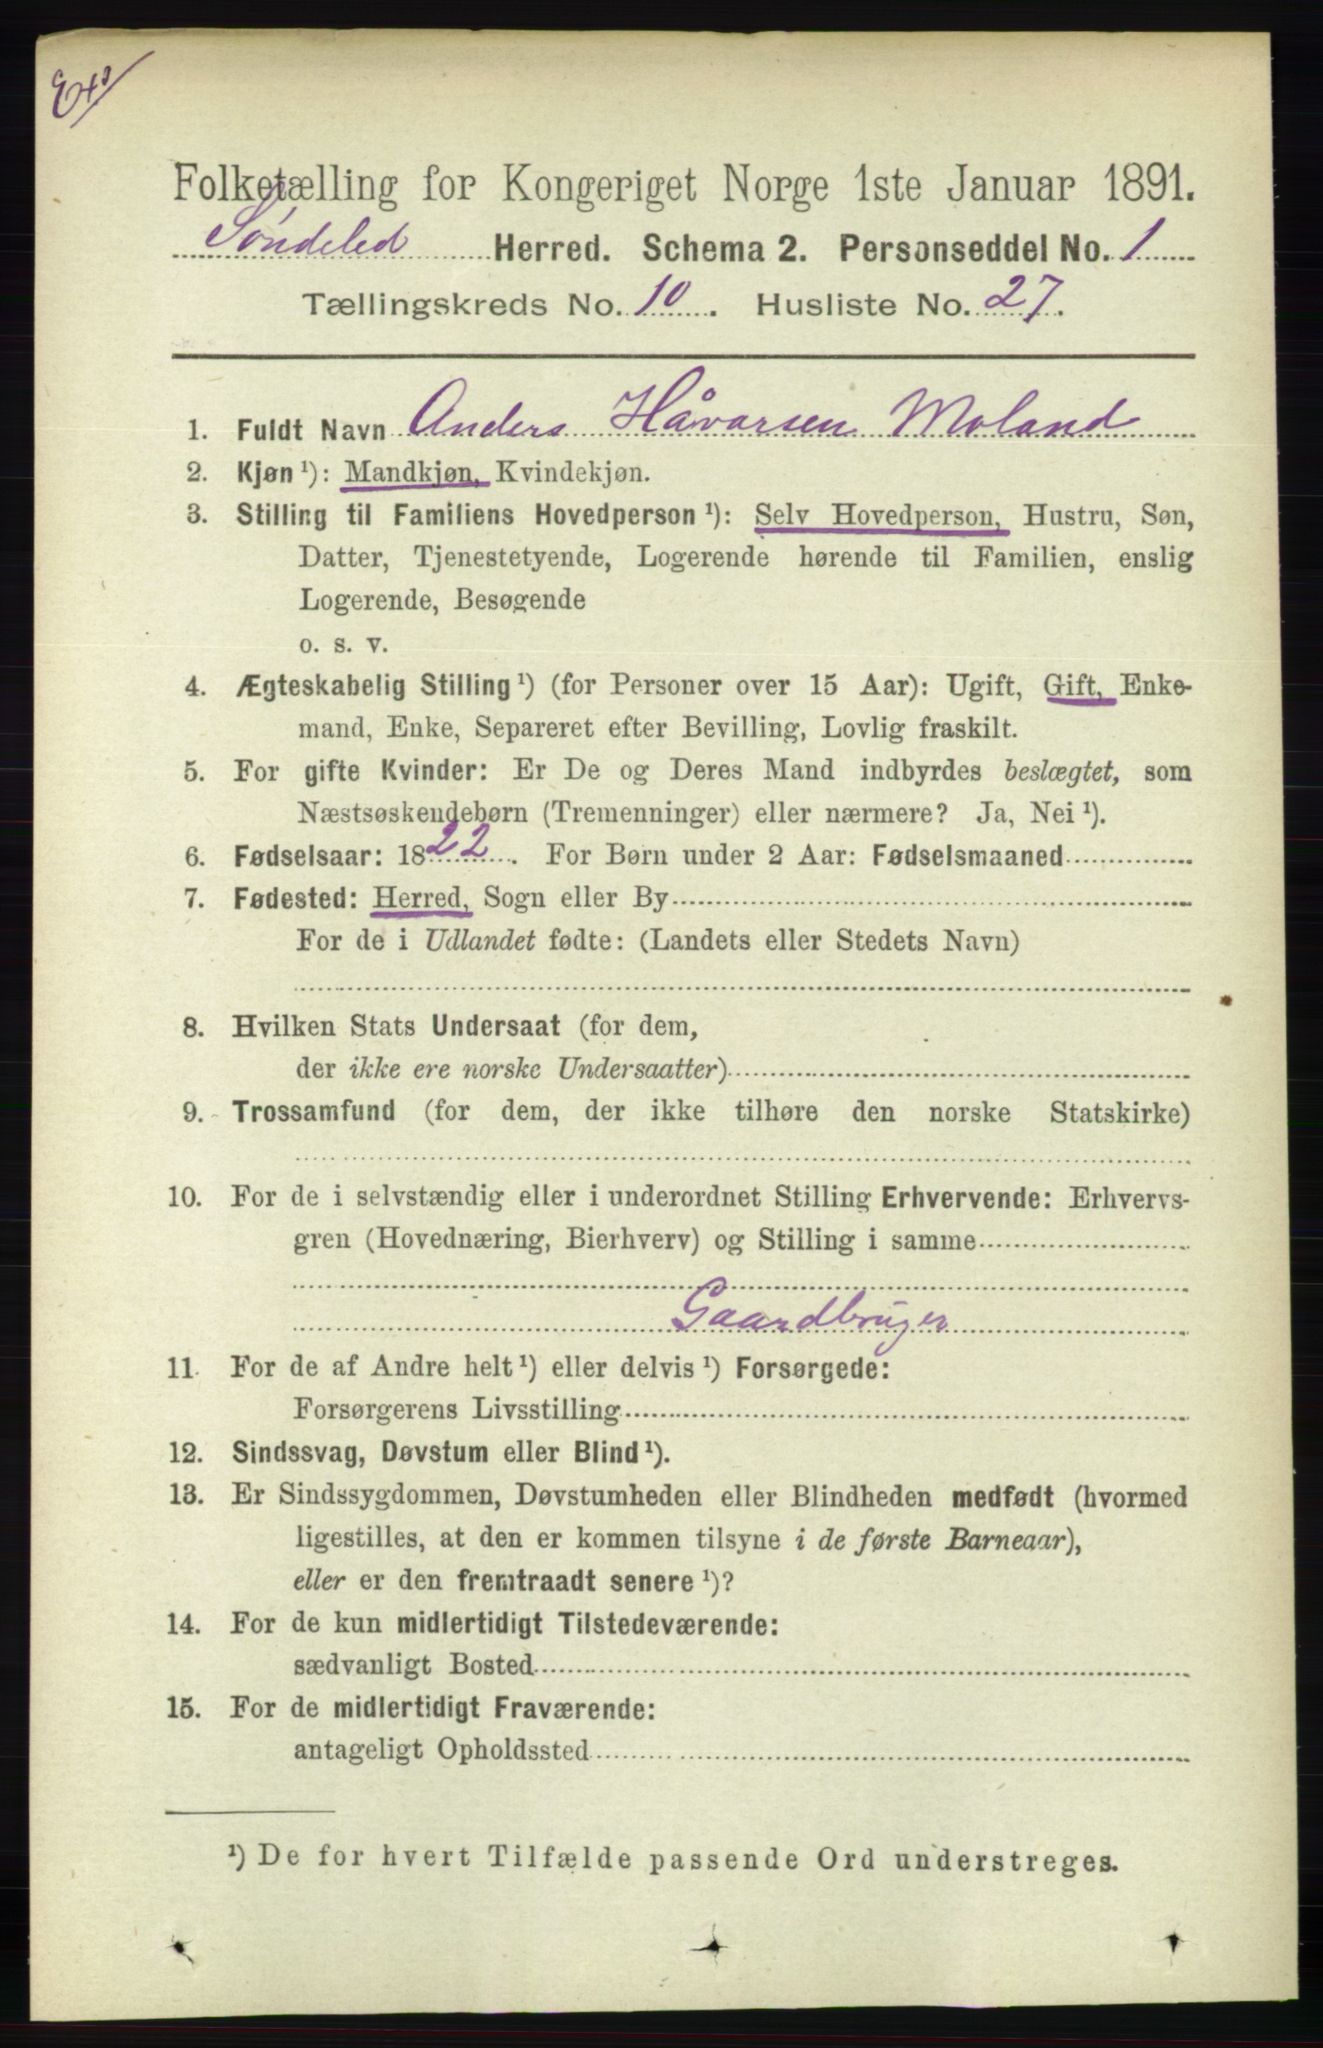 Folketælling for Kongeriget Norge 1ste Januar 1891.
Søndeled Herred. Schema 2. Personseddel No. 1
Tællingskreds No. 10. Husliste No. 27.
1. Fuldt Navn Anders Håvorsen Moland
2. Kjøn ¹): Mandkjøn, Kvindekjøn.
3. Stilling til Familiens Hovedperson ¹): Selv Hovedperson, Hustru, Søn,
Datter, Tjenestetyende, Logerende hørende til Familien, enslig
Logerende, Besøgende
o. s. v.
4. Ægteskabelig Stilling ¹) (for Personer over 15 Aar): Ugift, Gift, Enke-
mand, Enke, Separeret efter Bevilling, Lovlig fraskilt.
5. For gifte Kvinder: Er De og Deres Mand indbyrdes beslægtet, som
Næstsøskendebørn (Tremenninger) eller nærmere? Ja, Nei ¹).
6. Fødselsaar: 1822. For Børn under 2 Aar: Fødselsmaaned
7. Fødested: Herred, Sogn eller By
For de i Udlandet fødte: (Landets eller Stedets Navn)
8. Hvilken Stats Undersaat (for dem,
der ikke ere norske Undersaatter)
9. Trossamfund (for dem, der ikke tilhøre den norske Statskirke)
10. For de i selvstændig eller i underordnet Stilling Erhvervende: Erhvervs-
gren (Hovednæring, Bierhverv) og Stilling i samme
Gaardbruger
11. For de af Andre helt ¹) eller delvis ¹) Forsørgede:
Forsørgerens Livsstilling
12. Sindssvag, Døvstum eller Blind ¹).
13. Er Sindssygdommen, Døvstumheden eller Blindheden medfødt (hvormed
ligestilles, at den er kommen tilsyne i de første Barneaar),
eller er den fremtraadt senere ¹)?
14. For de kun midlertidigt Tilstedeværende:
sædvanligt Bosted
15. For de midlertidigt Fraværende:
antageligt Opholdssted
¹) De for hvert Tilfælde passende Ord understreges.